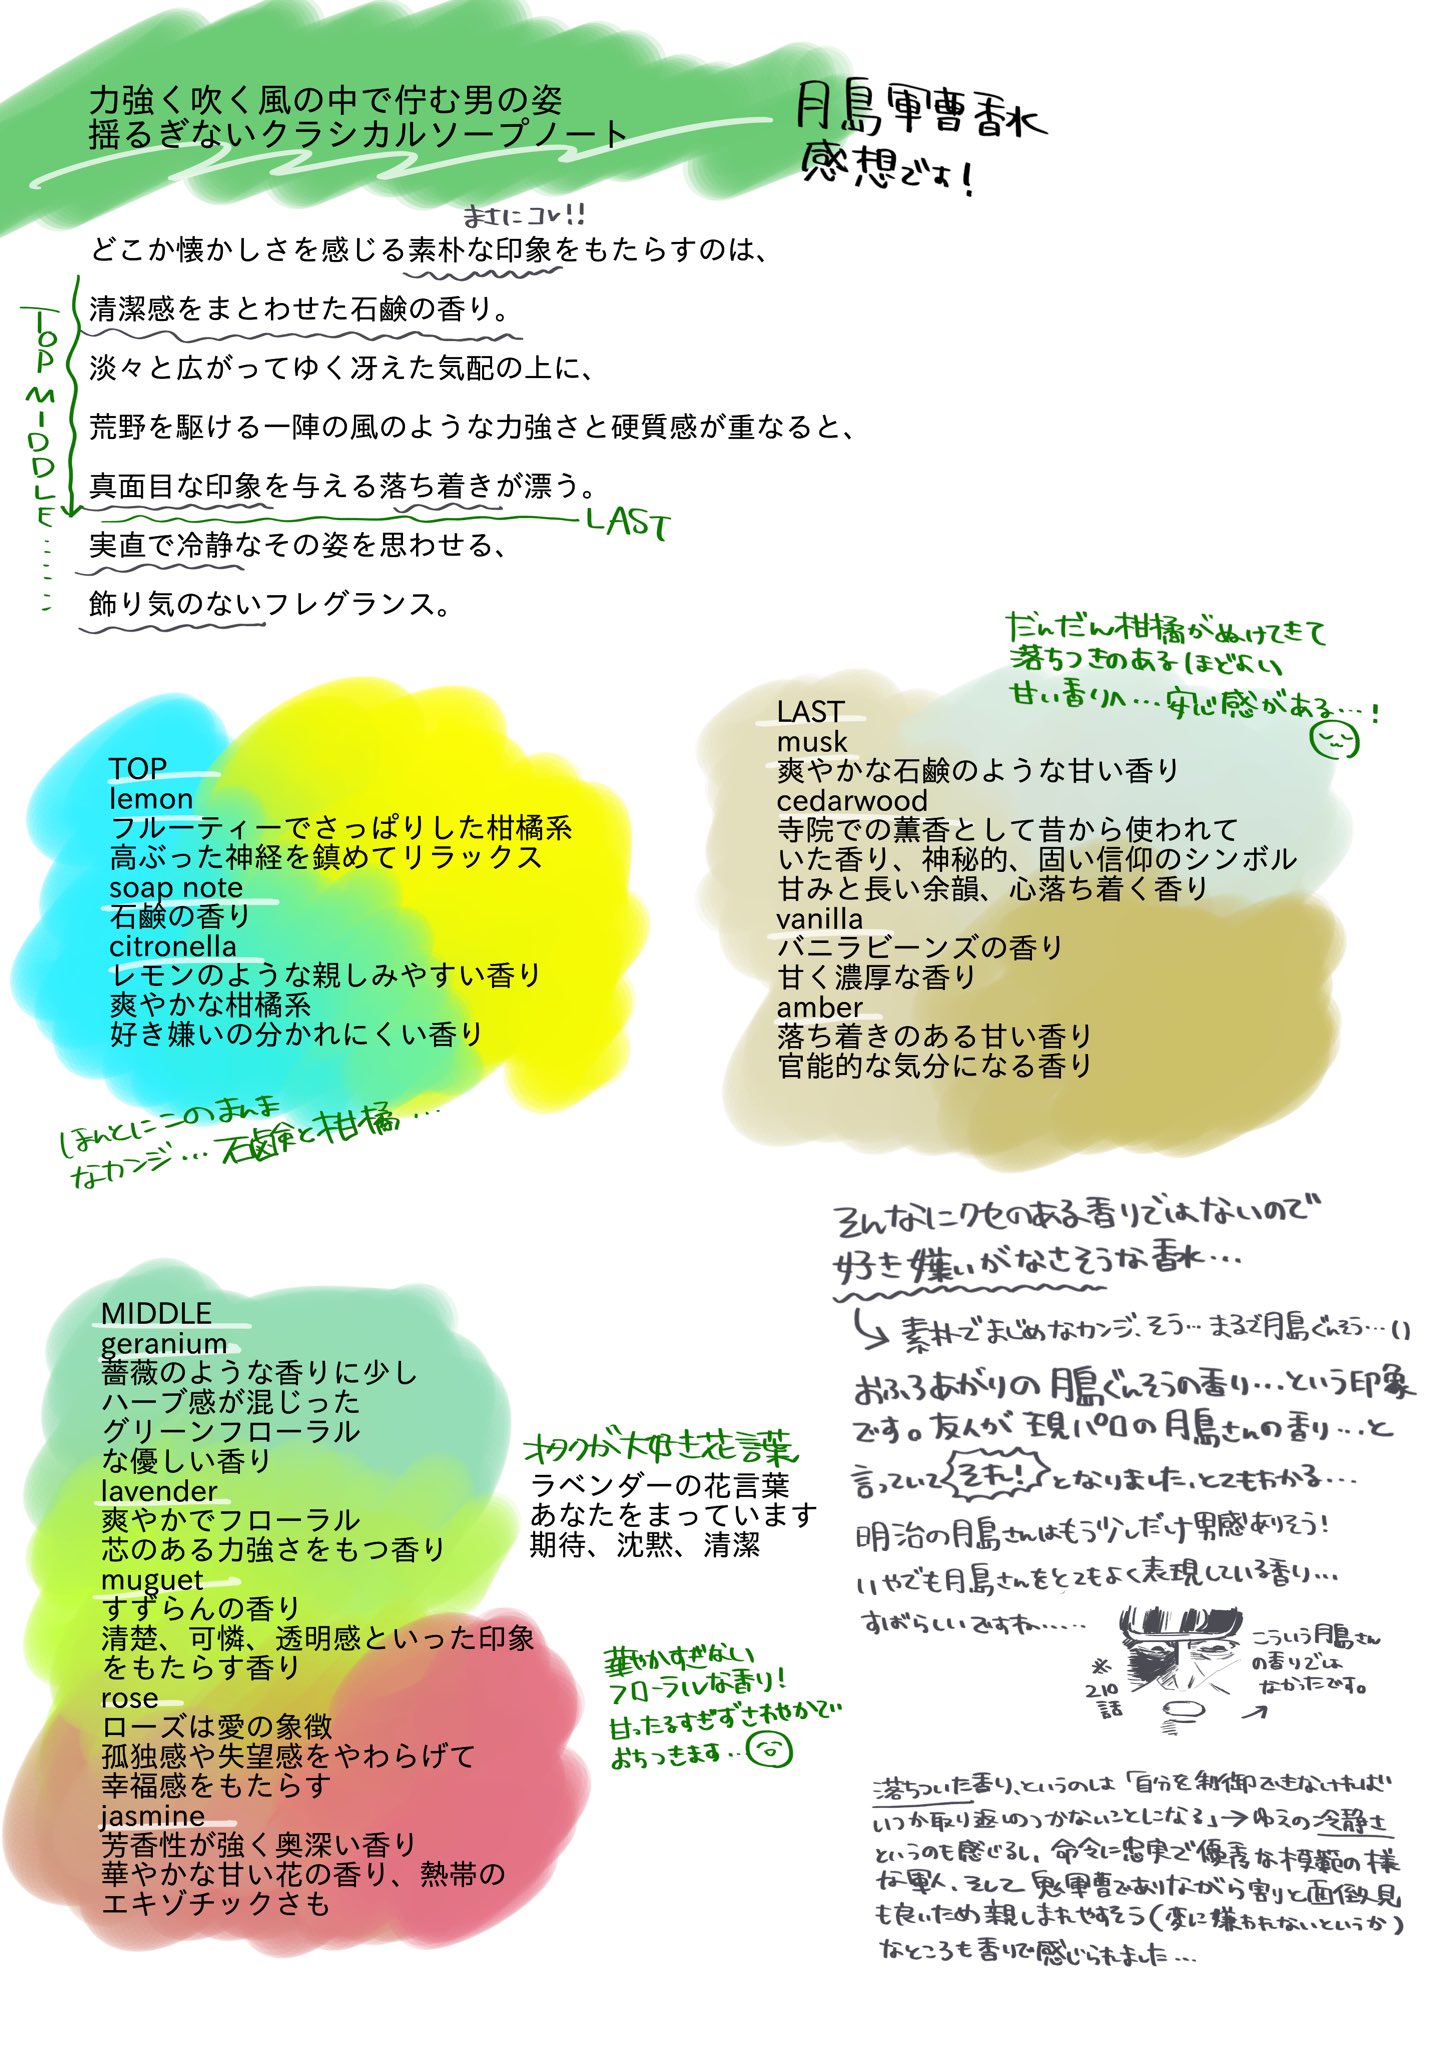 力強く吹く風の中で佇む男の姿
揺るぎないクラシカルソープノート
月島軍曹香水
感想です!
まさにコレ!!
どこか懐かしさを感じる素朴な印象をもたらすのは、
清潔感をまとわせた石鹸の香り。
淡々と広がってゆく冴えた気配の上に、
荒野を駆ける一陣の風のような力強さと硬質感が重なると、
真面目な印象を与える落ち着きが漂う。
実直で冷静なその姿を思わせる、
飾り気のないフレグランス。
TOP MIDDLE……
LAST
TOP
lemon
フルーティーでさっぱりした柑橘系
高ぶった神経を鎮めてリラックス
soap note
石鹸の香り
citronella
レモンのような親しみやすい香り
爽やかな柑橘系
好き嫌いの分かれにくい香り
ほんとにこのまんま
なカンジ…石鹸と柑橘…
だんだん柑橘がぬけてきて
落ちつきのあるほどよい
甘い香りへ…安心感がある…!
LAST
musk
爽やかな石鹸のような甘い香り
cedarwood
寺院での薫香として昔から使われて
いた香り、神秘的、固い信仰のシンボル
甘みと長い余韻、心落ち着く香り
vanilla
バニラビーンズの香り
甘く濃厚な香り
amber
落ち着きのある甘い香り
官能的な気分になる香り
MIDDLE
geranium
薔薇のような香りに少し
ハーブ感が混じった
グリーンフローラル
な優しい香り
lavender
爽やかでフローラル
芯のある力強さをもつ香り
muguet
すずらんの香り
清楚、可憐、透明感といった印象
をもたらす香り
rose
ローズは愛の象徴
孤独感や失望感をやわらげて
幸福感をもたらす
jasmine
芳香性が強く奥深い香り
華やかな甘い花の香り、熱帯の
エキゾチックさも
オタクが大好き花言葉
ラベンダーの花言葉
あなたをまっています
期待、沈黙、清潔
華やかすぎない
フローラルな香り!
甘ったるすぎずさわやかで
おちつきます…
そんなにクセのある香りではないので
好き嫌いがなさそうな香水…
素朴でまじめなカンジ、そう…まるで月島ぐんそう…い
おふろあがりの月島ぐんそうの香り…という印象
です。友人が現パロの月島さんの香り…と
言っていてそれ!となりました、とてもわかる…
明治の月島さんはもう少しだけ男感ありそう!
いやでも月島さんをとてもよく表現している香り…
すばらしいですね……
※210話
こういう月島さん
の香りでは
なかったです。
落ちついた香り、というのは「自分を制御できなければ
いつか取り返しのつかないことになる」→ゆえの冷静さ
というのも感じるし、命令に忠実で優秀な模範の様
な軍人、そして鬼軍曹でありながら割と面倒見
も良いため親しまれやすそう(変に嫌われないというか)
なところも香りで感じられました…